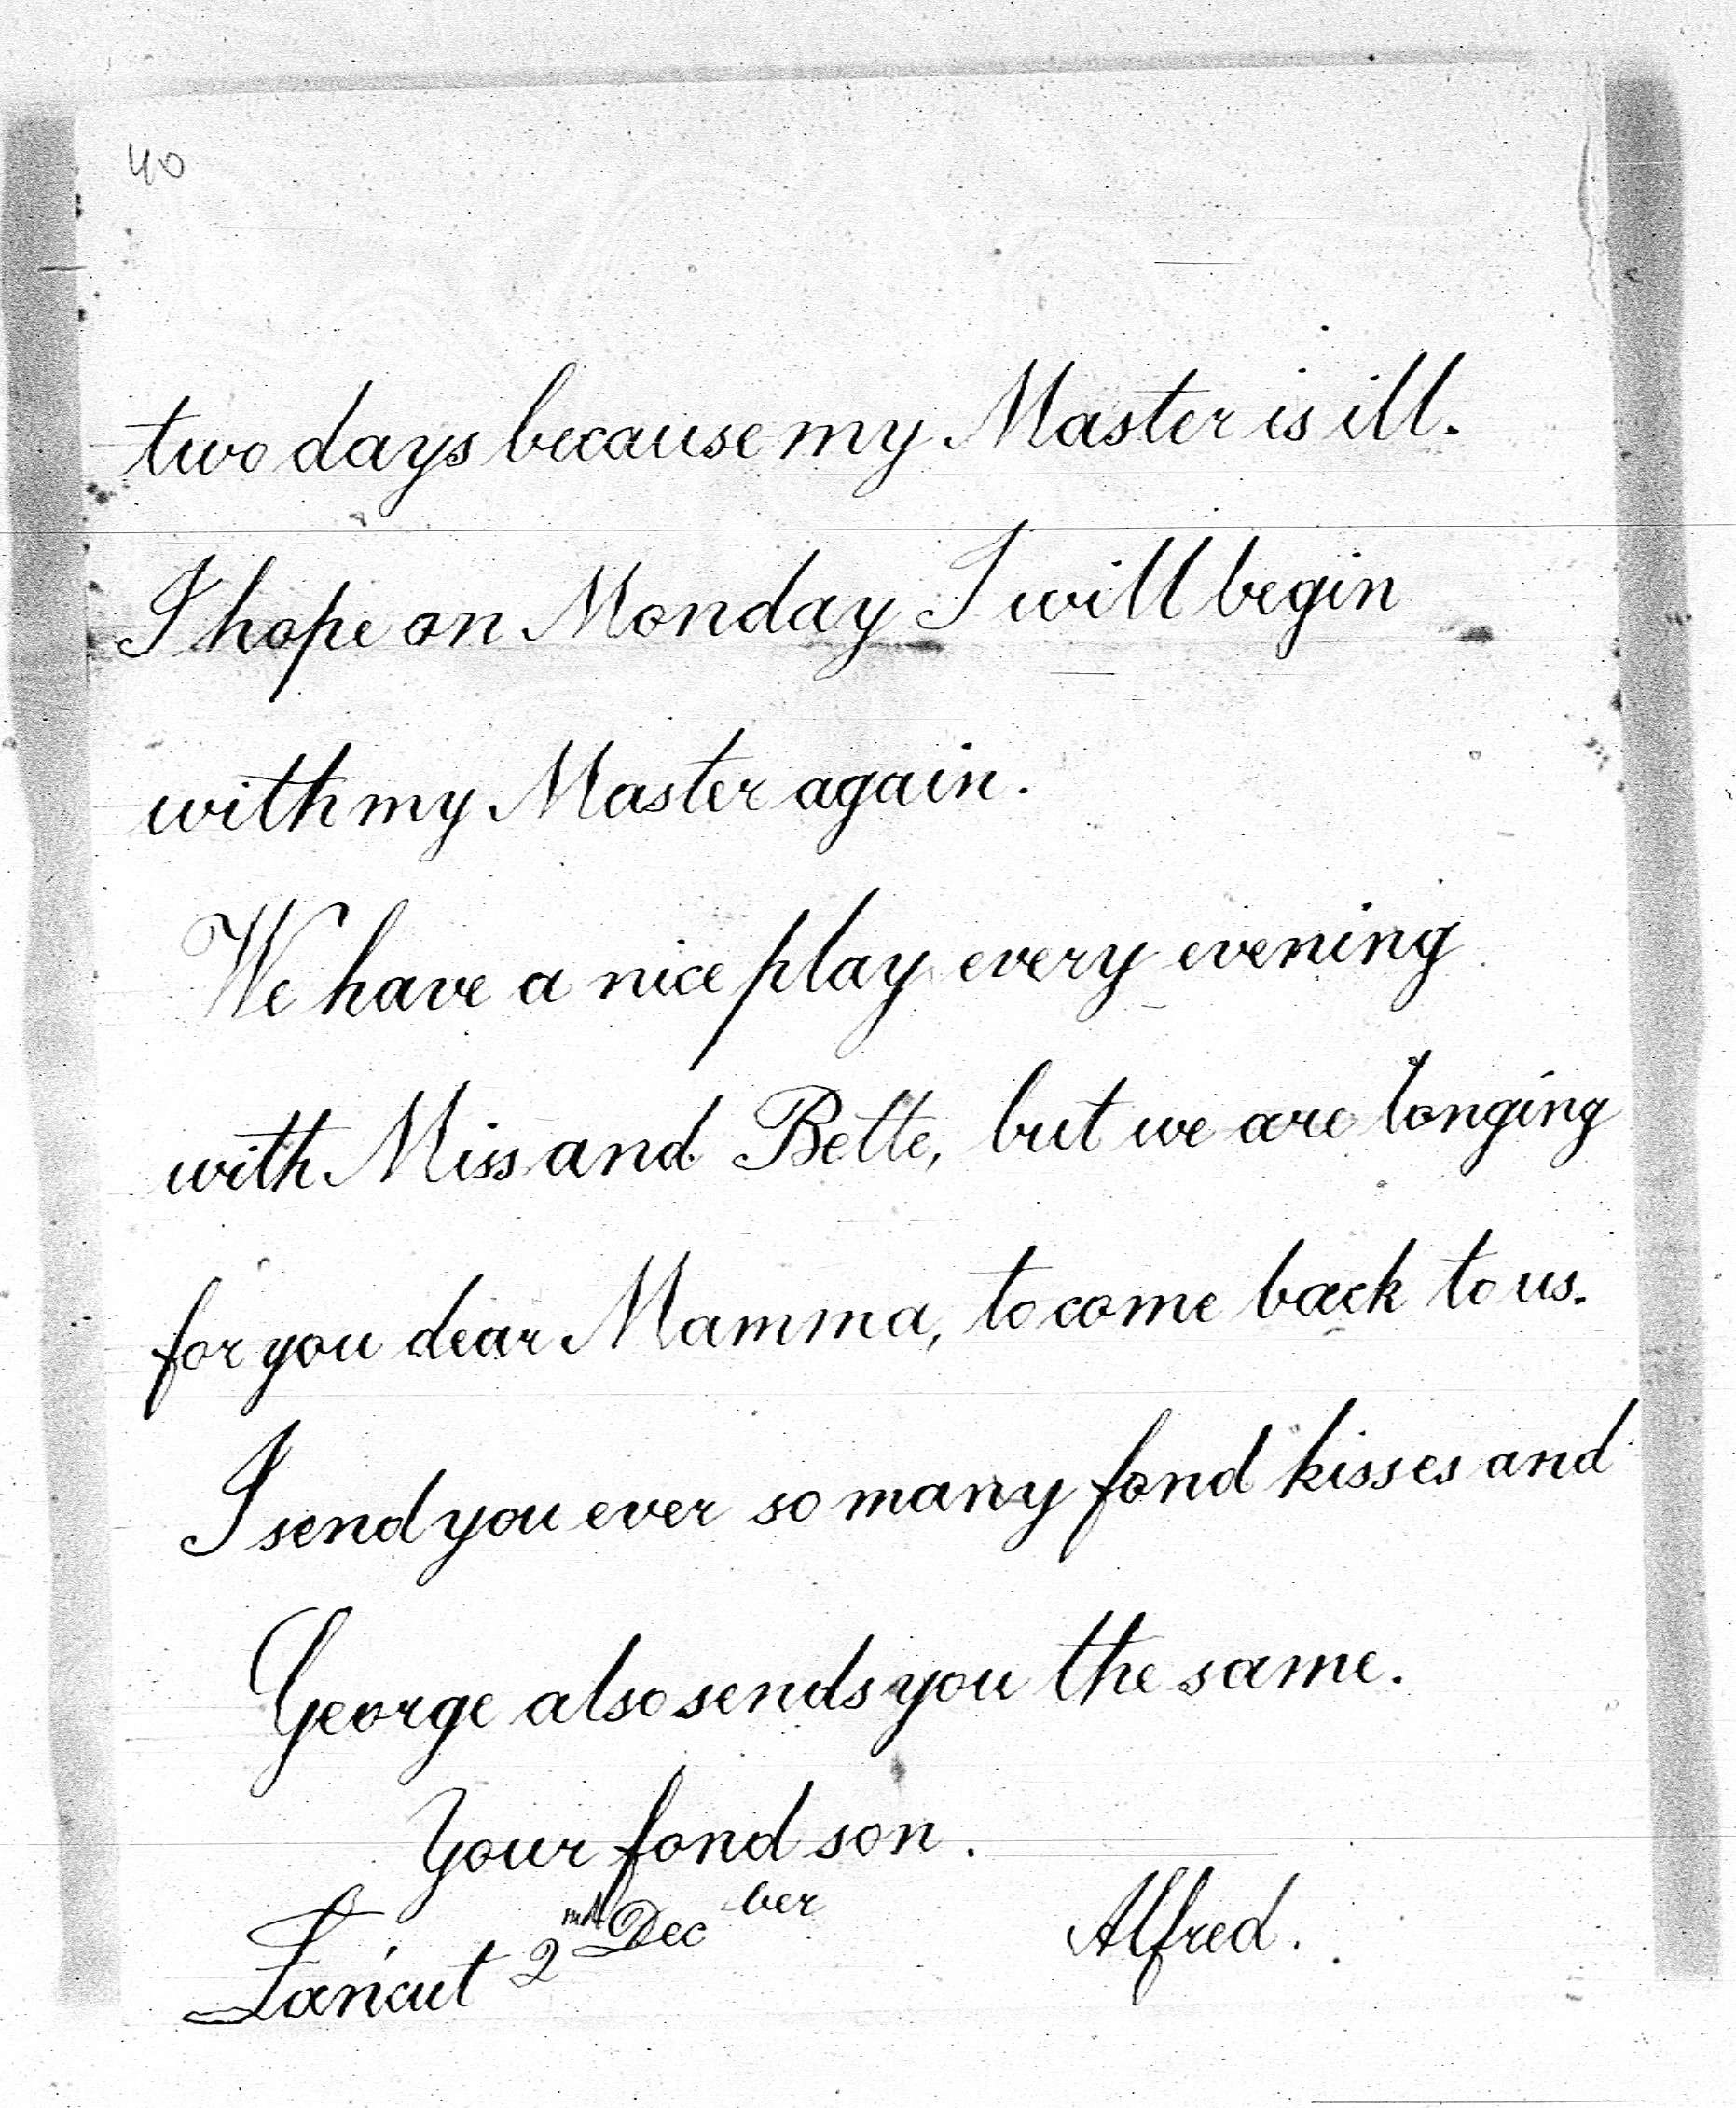 40
two days because my Master is ill.
I hope on Monday I will begin
with my Master again.
We have a nice play every evening
with Miss and Bette, but we are longing
for you dear Mamma, to come back to us.
I send you ever so many fond kisses and
George also sends you the same.
Your fond son.
Łańcut 2nd Decber Alfred.